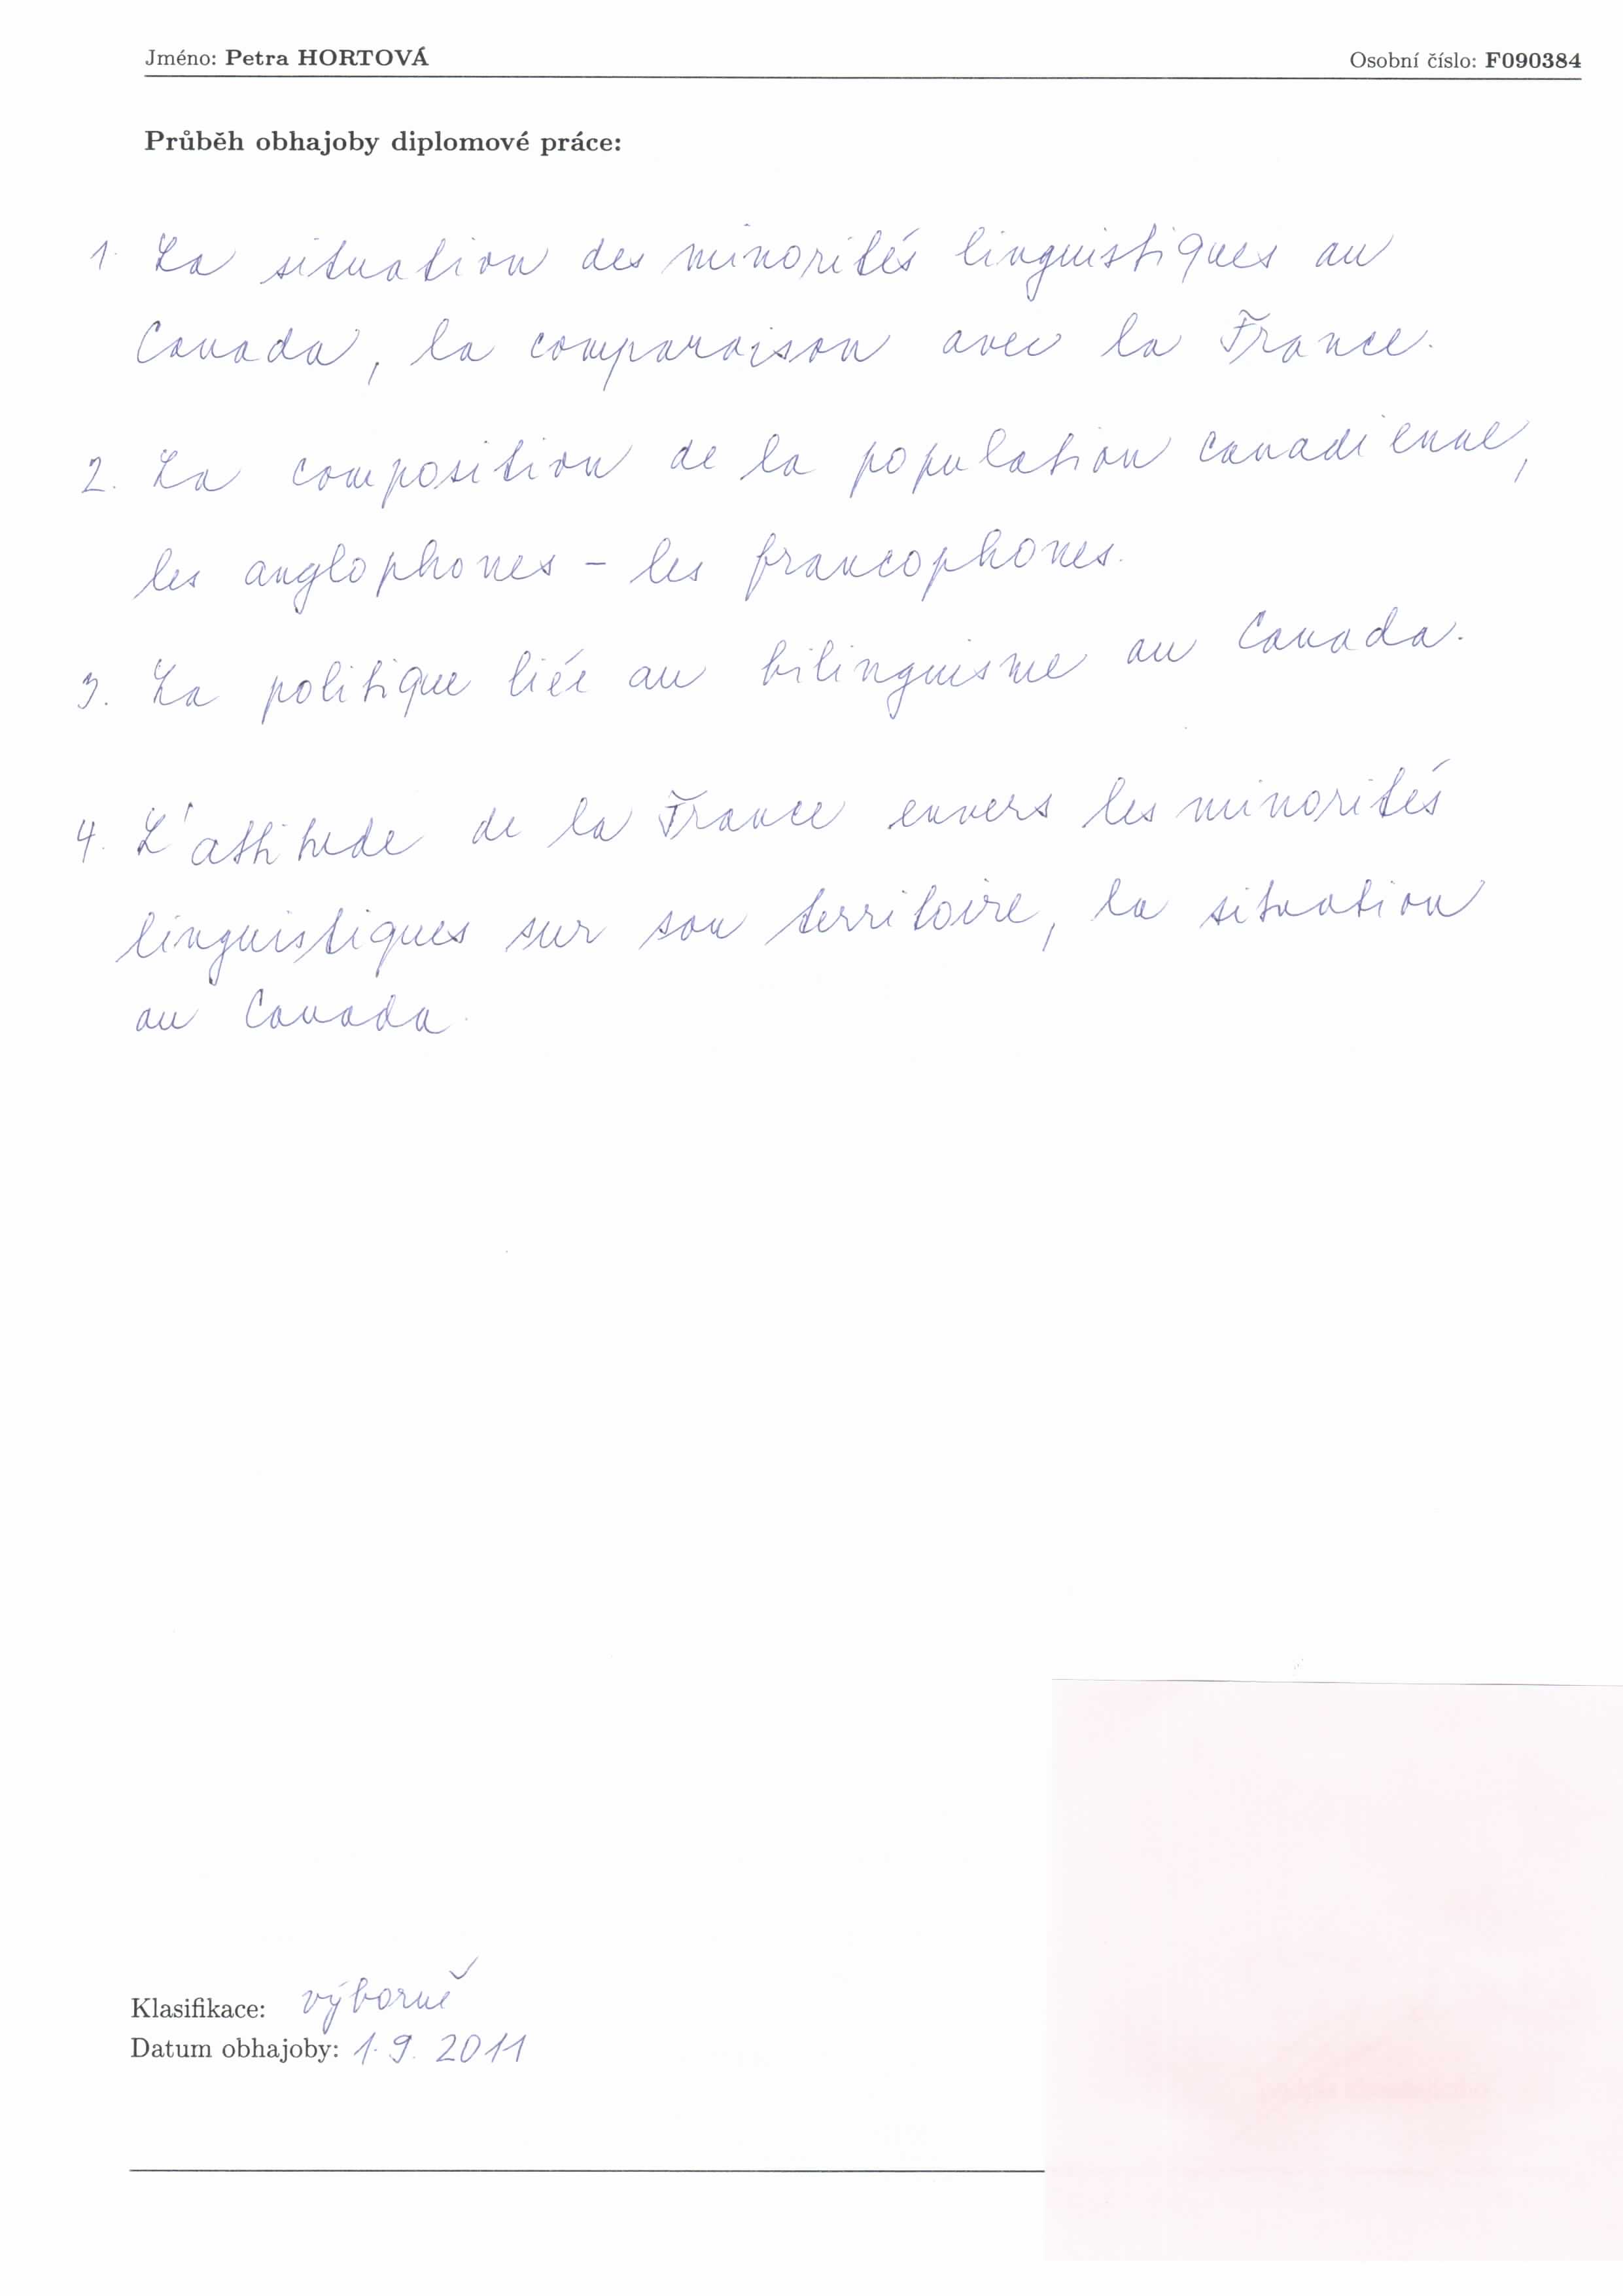 Jméno: Petra HORTOVÁ Osobní číslo: F090384
Průběh obhajoby diplomové práce:
1. La situation des minorités linguistiques au
Canada, la comparaison avec la France.
2. La composition de la population canadienne,
les anglophones – les francophones.
3. La politique liée au bilinguisme au Canada.
4. L'attitude de la France envers les minorités
linguistiques sur son territoire, la situation
au Canada.
Klasifikace: výborně
Datum obhajoby: 1. 9. 2011